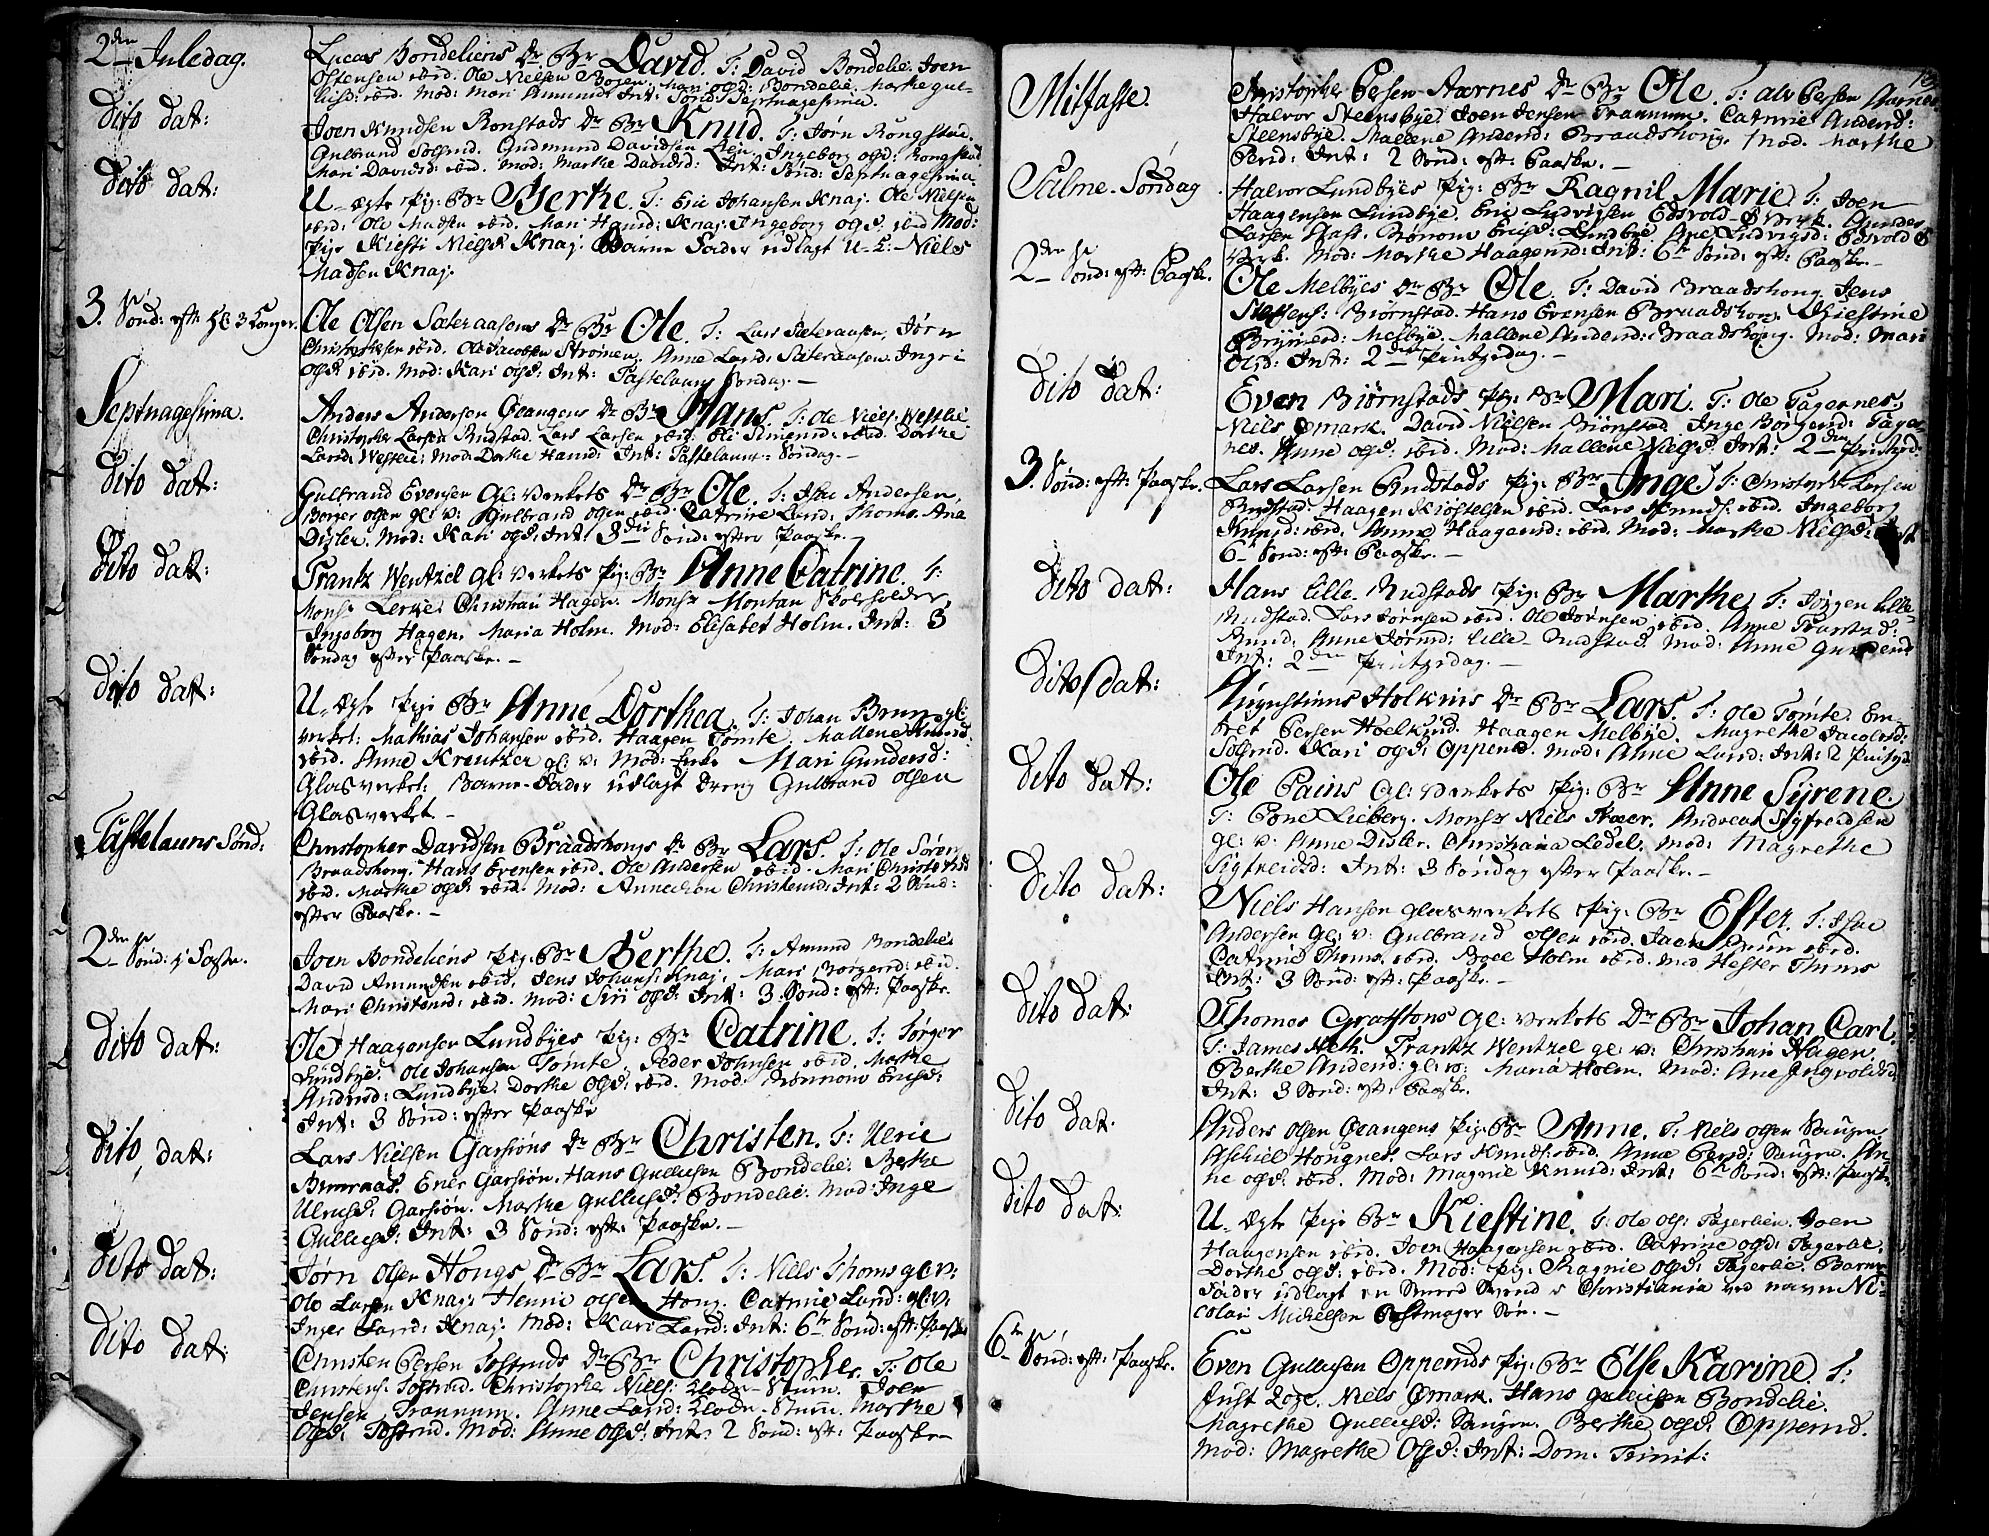 2den Juledag.
Lucas Bondeliens Dr. Br David. T: David Bondelie. Joen
Ostensen ibid. Ole Nielsen Mari Bondelie. Marthe Gul-
ibid. Mod: Mari Amunds: Int: Sønd: Septuagesima.
Dito dat:
Joen Knudsen Ronstads Dr Br Knud. T: Jørn Rongstad.
Gulbrand Solbrud. Gudmund Davidsen Lien. Ingeborg Olsd: Rongstad
Mari Davidsd: ibid. Mod: Marthe Davidsd: Int: Sønd: Septuagesima.
Dito dat:
U-Ægte Pig: Br Berthe. T: Eric Johansen Knaj. Ole Nielsen
ibid: Ole Madsen ibid. Mari Hansd: Knaj: Ingeborg Olsd. ibid Mod:
Pige Kiersti Nielsd Knaj. Barne Fader udlagt U-E: Niels
Madsen Knaj.
3. Sønd: eft: H: 3 Konger.
Ole Olsen Sæteraasens Dr Br Ole. T: Lars Sæteraasen, Jørn
Christophersen ibid. Ole Jacobsen Strømen, Anne Larsd: Sæteraasen. Ingri
Olsd ibid. Mod: Kari Olsd: Int: Fastelauns Søndag.—
Septuagesima.
Anders Andersen Grangens Dr Br Hans. T: Ole Niels: Westlie.
Christopher Larsen Rudstad. Lars Larsen ibid: Eli Simensd: ibid. Dorthe
Larsd: Westlie: Mod: Dorthe Hansd: Int: Fastelauns: Søndag.—
Dito dat:
Gulbrand Evensen Gl: Verkets Dr Br Ole. T: Isac Andersen,
Børger Olsen gl: v: Gulbrand Olsen ibid: Catrine Larsd: Thoms. Ana
Disler. Mod: Kari Olsd: Int: 3die Sønd: efter Paaske.—
Dito dat:
Frantz Wentzel Gl: Verkets Pig: Br Anne Catrine. T:
Monsr Lerche. Christian Hagen. Monsr Montan Skoelholder,
Ingeborg Hagen. Maria Holm. Mod: Elisabet Holm. Int: 3
Søndag efter Paaske.—
Dito dat:
U-Ægte Pige Br Anne Dorthea. T: Johan Brun gl:
verket: Mathias Johansen ibid. Haagen Tømte. Mallene
ibid. Anne Kreutzer gl: v: Mod: Mari Gundersd:
Glasverket: Barne-Fader udlagt Dreng Gulbrand Olsen
Glasverket.—
Fastelauns Sønd:
Christopher Davidsen Braadshougs Dr Br Lars. T: Ole Søren
Braadshoug. Hans Evensen ibid. Ole Andersen ibid. Mari Christensd
ibid. Marthe Olsd: ibid. Mod: Christensd: Int: 2 Sønd:
efter Paaske.—
2den Sønd: i Faste.
Joen Bondeliens Pig: Br Berthe. T: Amund Bondelie.
David Amundsen ibid, Jens Johans: Knaj. Mari Børgersd: ibid.
Mari Christensd: ibid. Mod: Siri Olsd: Int: 3. Sønd: eft: Paaske.
Dito dat:
Ole Haagensen Lundbyes Pig: Br Catrine. T: Jørger
Lundbye. Ole Johansen Tømte. Peder Johnsen ibid. Marthe
Andersd: Lundbye. Dorthe Olsd: ibid. Mod: Rønnow Ericsd:
Int: 3 Sønd: efter Paaske
Dito dat:
Lars Nielsen Garsiøns Dr Br Christen. T: Ulric
Bureraas. Ener Garsiøn. Hans Gullichsen Bondelie. Berthe
Ulrichsd: Garsiøn. Marthe Gullichsd: Bondelie. Mod: Inge
Gullichsd: Int: 3 Sønd: eft: Paaske.—
Dito dat:
Jørn Olsen Hougs Dr Br Lars. T: Niels Thoms gl: v:
Ole Larsen Knaj. Henric Olsen Houg. Catrine Larsd: gl: v:
Inger Larsd: Knaj. Mod: Kari Larsd: Int: 6te Sønd: eft: Paaske
Dito dat:
Christen Persen Sostruds Dr Br Christopher. T: Ole
Christens: Sostrud. Christopher Niels: Joen
Jensen Trannum. Anne Larsd: Marthe
Olsd: Sostrud. Mod: Anne Olsd: Int: 2 Sønd: eft: Paaske—
Mitfaste.
Christopher Persen Aarnes Dr Br Ole. T: Alv Persen Aarnes
Halvor Steensbye. Joen Jensen Trannum. Catrine Andersd:
Steensbye. Mallene Andersd: Braadshoug. Mod. Marthe
Persd: Int: 2 Sønd: eft: Paaske.—
Palme-Søndag
Halvor Lundbyes Pig: Br Ragnil Marie. T: Joen
Haagensen Lundbye. Eric Ludvigsen Edsvold Verk. Gunder
Larsen Rønnow Ericsd: Lundbye Ane Ludvigsd: Edsvold
Verk. Mod: Marthe Haagensd: Int: 6te Sønd: eft: Paaske.—
2den Sønd: eft: Paaske.
Ole Melbyes Dr Br Ole. T: David Braadshoug. Jens
Steffens: Biørnstad. Hans Evensen Braadshoug Kiestine
Melbye. Mallene Andersd: Braadshoug. Mod: Mari
Olsd: Int: 2den Pintzedag.—
Dito dat:
Even Biørnstads Pig: Br Mari. T: Ole Fagernes.
Niels Ømark. David Nielsen Biørnstad. Inge Børgersd: Fager
nes. Anne Olsd: ibid. Mod: Mallene Nielsd: Int: 2den Pintzed:
3. Sønd: eft: Paaske.
Lars Larsen Rudstads Pig: Br Inge. T: Christopher Larsen
Rudstad. Haagen Kiøstelsen ibid. Lars Knuds: ibid. Ingeborg
Knudsd: ibid. Anne Haagensd: ibid. Mod: Marthe Nielsd: Int
6te Sønd: eft: Paaske.—
Dito dat:
Hans Lille-Rudstads Pig: Br Marthe. T: Jørgen Lille-
Rudstad. Lars Jørnsen ibid. Ole Jørnsen ibid. Anne Frantzd:
Anne Jørnsd: Lille-Rudstad. Mod: Anne
Int: 2den Pintzedag.—
Dito dat:
Augustinus Holkins Dr Br Lars. T: Ole Tømte. Em-
bret Persen Hoelkind. Haagen Melbye. Magrethe Jacobsd:
Kari Olsd: Oppend. Mod: Anne Larsd: Int: 2 Pintzd
Dito dat:
Ole Pains Gl: Verkets Pig: Br Anne Syrene.
T: Eone Lieberg. Monsr Niels Andreas Sigfreidsen
gl: v: Anne Disler. Christiana Ledel. Mod: Magrethe
Sigfreidsd: Int: 3 Søndag efter Paaske.—
Dito dat:
Niels Hansen Glasverkets Pig: Br Ester. T: Isac
Andersen Gl: v: Gulbrand Olsen ibid. Joen ibid.
Catrine Thoms. ibid. Boel Holm ibid. Mod Hester Thoms
Int: 3 Sønd: eft: Paaske.—
Dito dat:
Thomas Graftons Gl: Verkets Dr Br Johan Carl.
T: James Frantz Wentzel gl: v: Christian Hagen.
Berthe Andersd: gl: v: Maria Holm. Mod: Ane Ingvoldsd
Int: 3 Sønd: eft: Paaske.
Dito dat.
Anders Olsen Grangens Pig: Br Anne. T: Niels Olsen Saugen.
Aschiel Hougnes. Lars Knuds: ibid. Anne Persd: Saugen. An-
ne Olsd: ibid. Mod: Magnil Knudsd: Int: 6te Sønd: eft: Paaske.
Dito dat:
U-Ægte Pige Br Kiestine. T: Ole Ols: Fagerlien. Joen
Haagensen ibid. Joen Haagensen ibid. Catrine Olsd: Fagerlie.
Dorthe Olsd: ibid. Mod: Pig: Ragnil Olsd: Fagerlie. Barne
Fader udlagt en Smed Svend i Christiania ved navn Ni-
colai Michelsen Postmager Søn.—
6te Sønd: eft: Paaske.
Even Gullichsen Oppends Pig: Br Else Karine. T:
Just Loze. Niels Ømark. Hans Gullichsen Bondelie.
Magrethe Gullichsd: Saugen. Berthe Olsd: Oppend.
Mod: Magrethe Olsd: Int: Dom: Trinit: